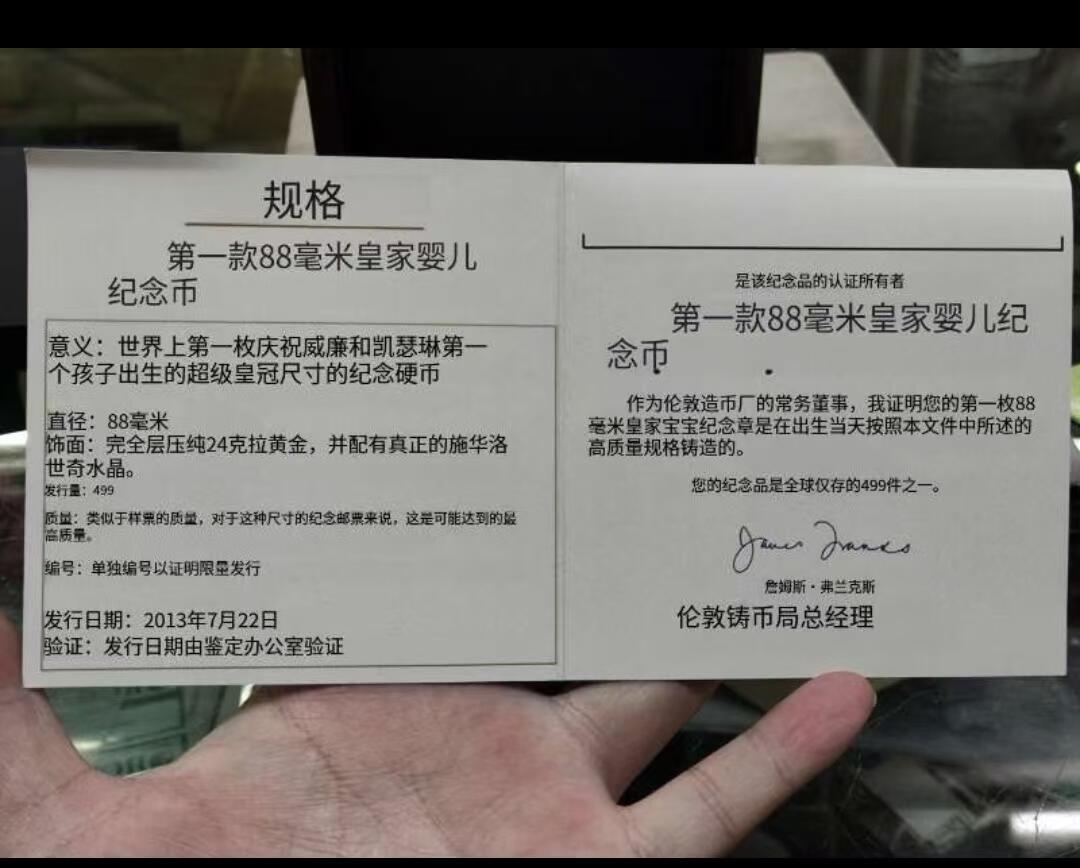 规格
第一款88毫米皇家婴儿
纪念币
意义：世界上第一枚庆祝威廉和凯瑟琳第一
个孩子出生的超级皇冠尺寸的纪念硬币
直径：88毫米
饰面：完全层压纯24克拉黄金，并配有真正的施华洛
世奇水晶。
发行量：499
质量：类似于样票的质量，对于这种尺寸的纪念邮票来说，这是可能达到的最
高质量。
编号：单独编号以证明限量发行
发行日期：2013年7月22日
验证：发行日期由鉴定办公室验证
是该纪念品的认证所有者
第一款88毫米皇家婴儿纪
念币
作为伦敦造币厂的常务董事，我证明您的第一枚88
毫米皇家宝宝纪念章是在出生当天按照本文件中所述的
高质量规格铸造的。
您的纪念品是全球仅存的499件之一。
James Franks
詹姆斯·弗兰克斯
伦敦铸币局总经理